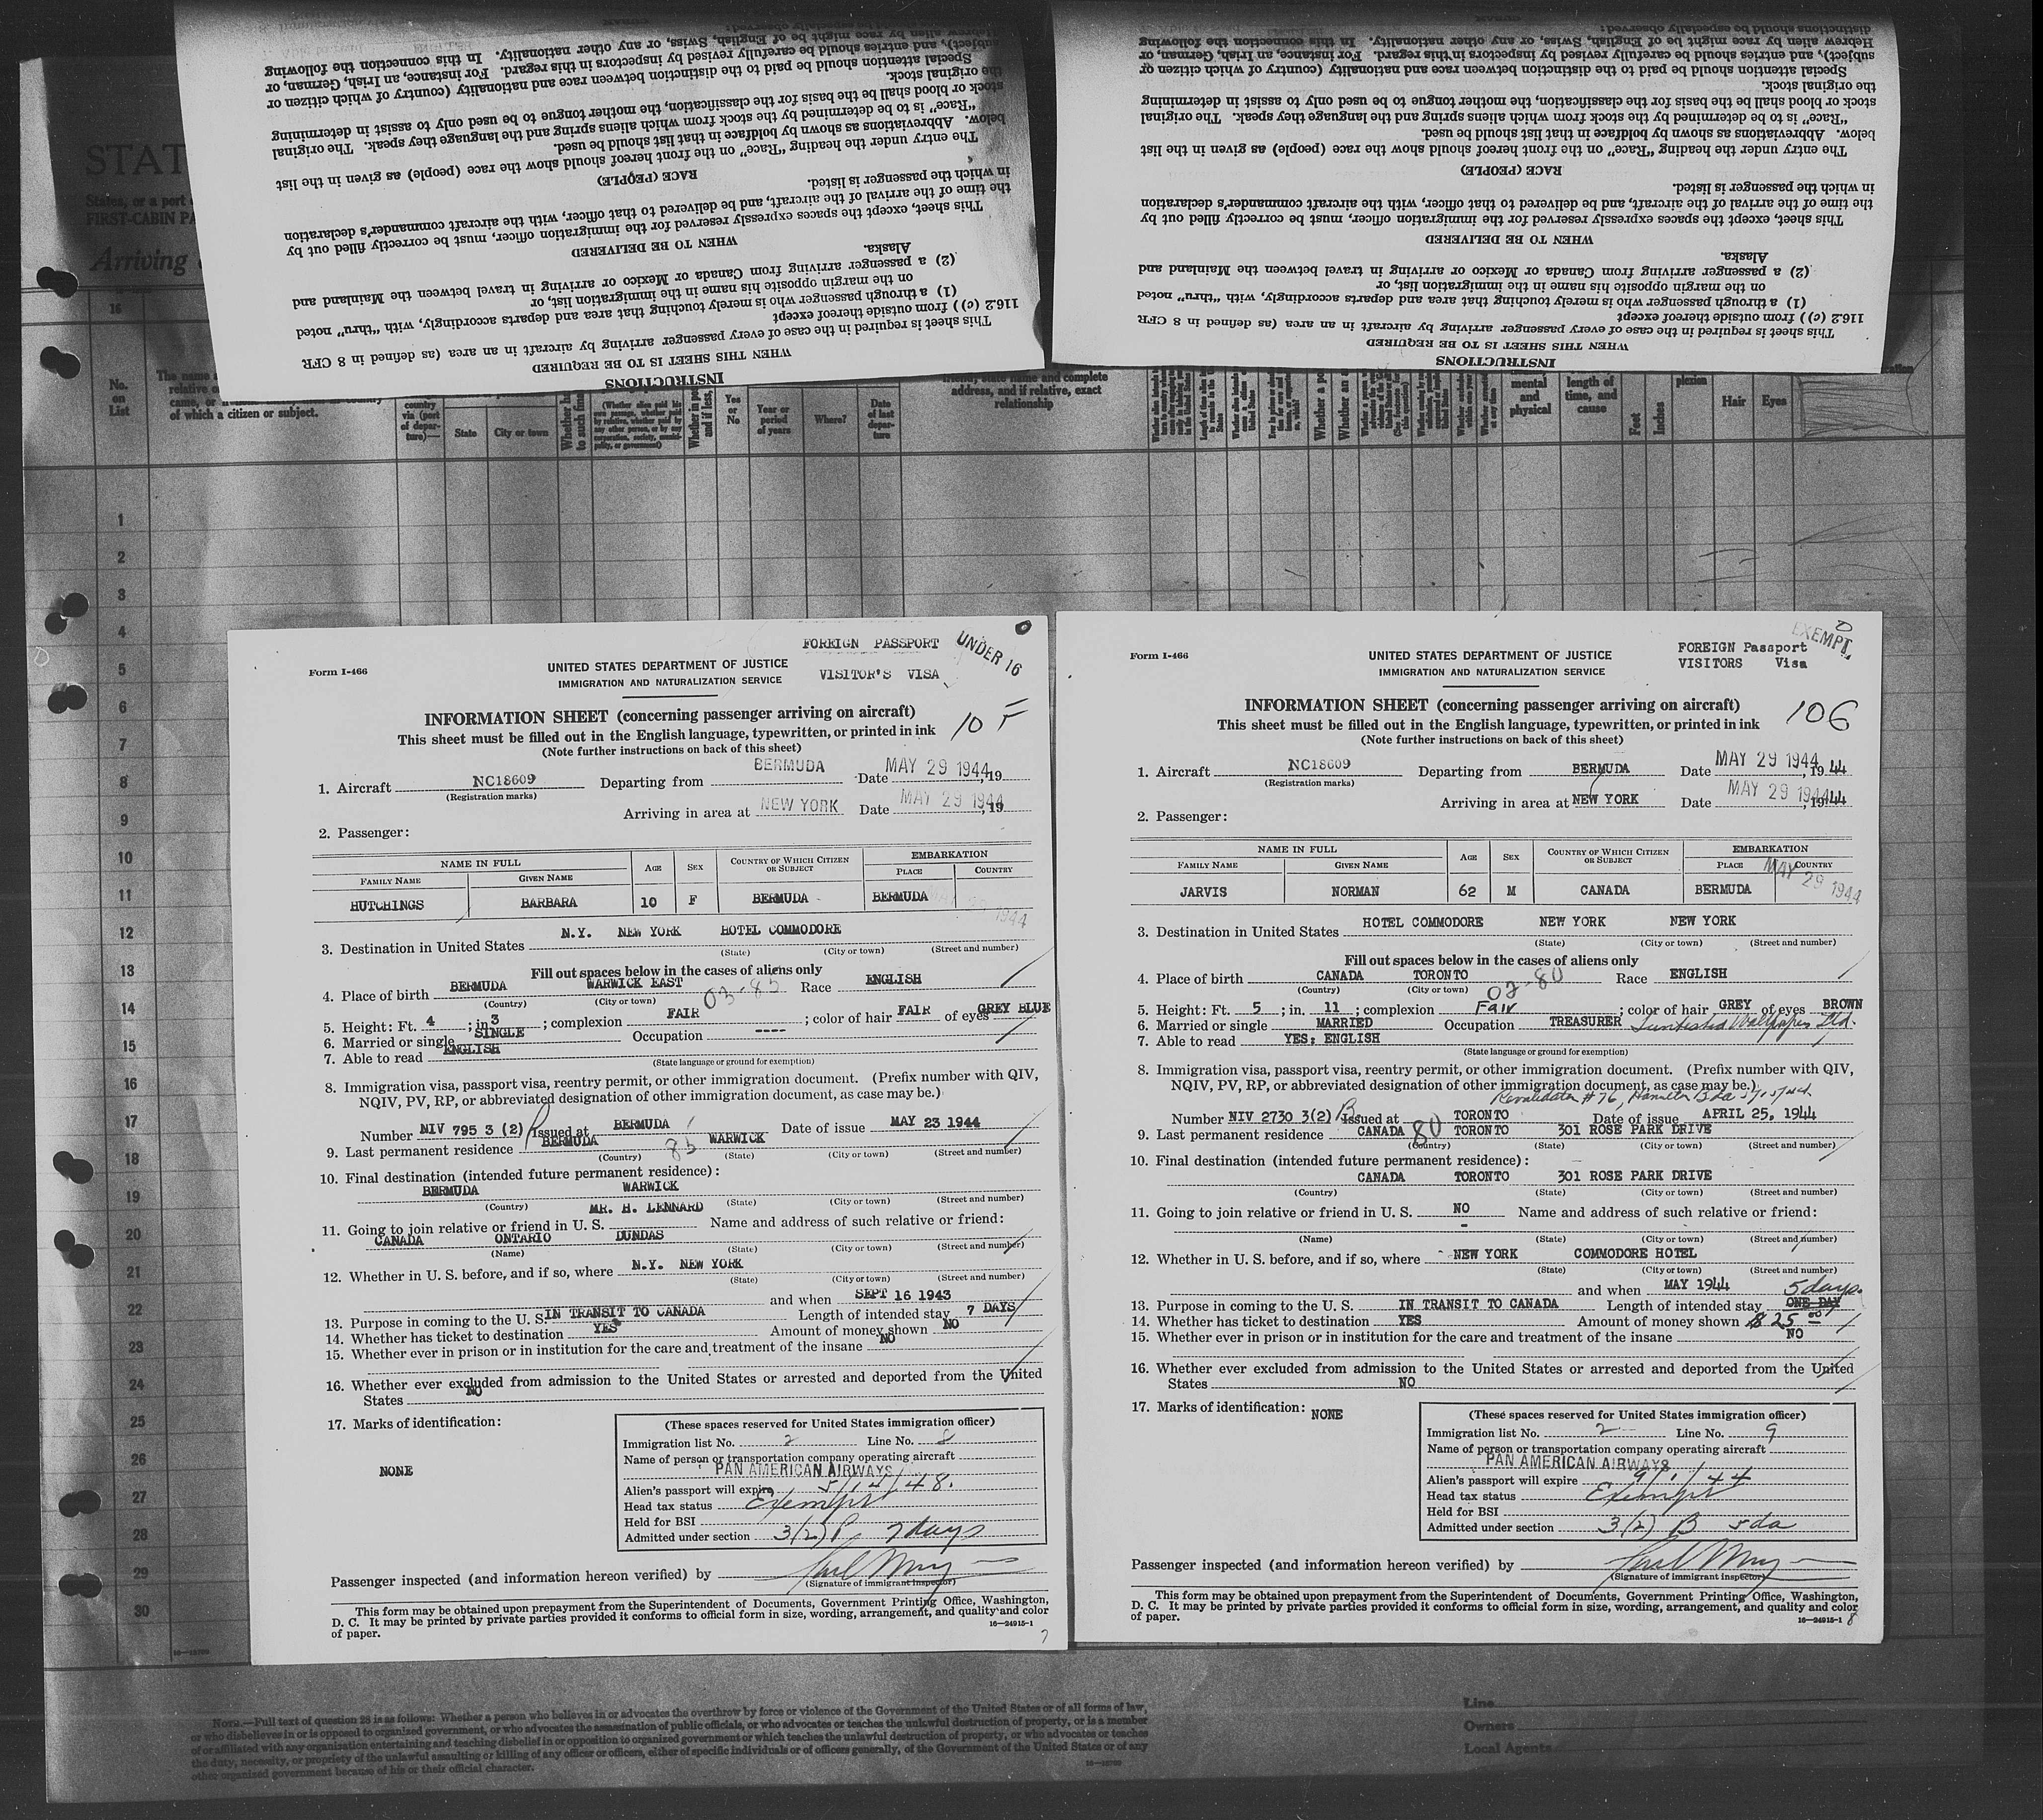 INSTRUCTIONS
WHEN THIS SHEET IS TO BE REQUIRED
This sheet is required in the case of every passenger arriving by aircraft in an area (as defined in 8 CFR
116.2 (c)) from outside thereof except
(1) a through passenger who is merely touching that area and departs accordingly, with "thru" noted
on the margin opposite his name in the immigration list, or
(2) a passenger arriving from Canada or Mexico or arriving in travel between the Mainland and
Alaska.
WHEN TO BE DELIVERED
This sheet, except the spaces expressly reserved for the immigration officer, must be correctly filled out by
the time of the arrival of the aircraft, and be delivered to that officer, with the aircraft commander's declaration
in which the passenger is listed.
RACE (PEOPLE)
The entry under the heading "Race" on the front hereof should show the race (people) as given in the list
below. Abbreviations as shown by boldface in that list should be used.
"Race" is to be determined by the stock from which aliens spring and the language they speak. The original
stock or blood shall be the basis for the classification, the mother tongue to be used only to assist in determining
the original stock.
Special attention should be paid to the distinction between race and nationality (country of which citizen or
subject), and entries should be carefully revised by inspectors in this regard. For instance, an Irish, German, or
Hebrew alien by race might be of English, Swiss, or any other nationality. In this connection the following
INSTRUCTIONS
WHEN THIS SHEET IS TO BE REQUIRED
This sheet is required in the case of every passenger arriving by aircraft in an area (as defined in 8 CFR
116.2 (c)) from outside thereof except
(1) a through passenger who is merely touching that area and departs accordingly, with "thru" noted
on the margin opposite his name in the immigration list, or
(2) a passenger arriving from Canada or Mexico or arriving in travel between the Mainland and
Alaska.
WHEN TO BE DELIVERED
This sheet, except the spaces expressly reserved for the immigration officer, must be correctly filled out by
the time of the arrival of the aircraft, and be delivered to that officer, with the aircraft commander's declaration
in which the passenger is listed.
RACE (PEOPLE)
The entry under the heading "Race" on the front hereof should show the race (people) as given in the list
below. Abbreviations as shown by boldface in that list should be used.
"Race" is to be determined by the stock from which aliens spring and the language they speak. The original
stock or blood shall be the basis for the classification, the mother tongue to be used only to assist in determining
the original stock.
Special attention should be paid to the distinction between race and nationality (country of which citizen or
subject), and entries should be carefully revised by inspectors in this regard. For instance, an Irish, German, or
Hebrew alien by race might be of English, Swiss, or any other nationality. In this connection the following
distinctions should be especially observed:
STAT
States, or a port
FIRST-CABIN PA
Arriving
16
No. on List
of which a citizen or subject.
country via (port of departure)—
State
City or town
Yes or No
Year or period of years
Where?
Date of last departure
address, and if relative, exact relationship
mental and physical
length of time, and cause
Feet
Inches
plexion
Hair
Eyes
1
2
3
4
5
6
7
8
9
10
11
12
13
14
15
16
17
18
19
20
21
22
23
24
25
26
27
28
29
30
FOREIGN PASSPORT
VISITOR'S VISA
UNDER 16
Form I-466
UNITED STATES DEPARTMENT OF JUSTICE
IMMIGRATION AND NATURALIZATION SERVICE
INFORMATION SHEET (concerning passenger arriving on aircraft)
10 F
This sheet must be filled out in the English language, typewritten, or printed in ink
(Note further instructions on back of this sheet)
1. Aircraft NC18609 Departing from BERMUDA Date MAY 29 1944, 19
(Registration marks)
Arriving in area at NEW YORK Date MAY 29 1944, 19
2. Passenger:
NAME IN FULL AGE SEX COUNTRY OF WHICH CITIZEN OR SUBJECT EMBARKATION
FAMILY NAME GIVEN NAME PLACE COUNTRY
HUTCHINGS BARBARA 10 F BERMUDA BERMUDA
3. Destination in United States N.Y. NEW YORK HOTEL COMMODORE
(State) (City or town) (Street and number)
Fill out spaces below in the cases of aliens only
4. Place of birth BERMUDA WARWICK EAST Race ENGLISH
(Country) (City or town) 03-85
5. Height: Ft. 4; in. 3; complexion FAIR; color of hair FAIR of eyes GREY BLUE
6. Married or single SINGLE Occupation ----
7. Able to read ENGLISH
(State language or ground for exemption)
8. Immigration visa, passport visa, reentry permit, or other immigration document. (Prefix number with QIV,
NQIV, PV, RP, or abbreviated designation of other immigration document, as case may be.)
Number NIV 795 3 (2) Issued at BERMUDA Date of issue MAY 23 1944
9. Last permanent residence BERMUDA 85 WARWICK
(Country) (State) (City or town) (Street and number)
10. Final destination (intended future permanent residence):
BERMUDA WARWICK
(Country) (State) (City or town) (Street and number)
MR. H. LENNARD
11. Going to join relative or friend in U. S. Name and address of such relative or friend:
CANADA ONTARIO DUNDAS
(Name) (State) (City or town) (Street and number)
12. Whether in U. S. before, and if so, where N.Y. NEW YORK
(State) (City or town) (Street and number)
and when SEPT 16 1943
13. Purpose in coming to the U. S. IN TRANSIT TO CANADA Length of intended stay 7 DAYS
14. Whether has ticket to destination YES Amount of money shown NO
15. Whether ever in prison or in institution for the care and treatment of the insane NO
16. Whether ever excluded from admission to the United States or arrested and deported from the United
States NO
17. Marks of identification:
NONE
(These spaces reserved for United States immigration officer)
Immigration list No. 2 Line No. 8
Name of person or transportation company operating aircraft
PAN AMERICAN AIRWAYS
Alien's passport will expire 5/14/48.
Head tax status Exempt
Held for BSI
Admitted under section 3(2) 7 days
Passenger inspected (and information hereon verified) by
(Signature of immigrant inspector)
This form may be obtained upon prepayment from the Superintendent of Documents, Government Printing Office, Washington,
D. C. It may be printed by private parties provided it conforms to official form in size, wording, arrangement, and quality and color
of paper.
16—24915-1
7
FOREIGN Passport
VISITORS Visa
EXEMPT
Form I-466
UNITED STATES DEPARTMENT OF JUSTICE
IMMIGRATION AND NATURALIZATION SERVICE
INFORMATION SHEET (concerning passenger arriving on aircraft)
106
This sheet must be filled out in the English language, typewritten, or printed in ink
(Note further instructions on back of this sheet)
1. Aircraft NC18609 Departing from BERMUDA Date MAY 29 1944, 1944
(Registration marks)
Arriving in area at NEW YORK Date MAY 29 1944, 1944
2. Passenger:
NAME IN FULL AGE SEX COUNTRY OF WHICH CITIZEN OR SUBJECT EMBARKATION
FAMILY NAME GIVEN NAME PLACE COUNTRY
MAY 29 1944
JARVIS NORMAN 62 M CANADA BERMUDA
3. Destination in United States HOTEL COMMODORE NEW YORK NEW YORK
(State) (City or town) (Street and number)
Fill out spaces below in the cases of aliens only
4. Place of birth CANADA TORONTO Race ENGLISH
(Country) (City or town) 02-80
5. Height: Ft. 5; in. 11; complexion Fair; color of hair GREY of eyes BROWN
6. Married or single MARRIED Occupation TREASURER Wallpapers Ltd.
7. Able to read YES; ENGLISH
(State language or ground for exemption)
8. Immigration visa, passport visa, reentry permit, or other immigration document. (Prefix number with QIV,
NQIV, PV, RP, or abbreviated designation of other immigration document, as case may be.)
#76, Hamilton Bda 5/15/44
Number NIV 2730 3(2) B Issued at TORONTO Date of issue APRIL 25, 1944
9. Last permanent residence CANADA 80 TORONTO 301 ROSE PARK DRIVE
(Country) (State) (City or town) (Street and number)
10. Final destination (intended future permanent residence):
CANADA TORONTO 301 ROSE PARK DRIVE
(Country) (State) (City or town) (Street and number)
11. Going to join relative or friend in U. S. NO Name and address of such relative or friend:
-
(Name) (State) (City or town) (Street and number)
12. Whether in U. S. before, and if so, where NEW YORK COMMODORE HOTEL
(State) (City or town) (Street and number)
and when MAY 1944 5 days.
13. Purpose in coming to the U. S. IN TRANSIT TO CANADA Length of intended stay ONE DAY
14. Whether has ticket to destination YES Amount of money shown $25 00
15. Whether ever in prison or in institution for the care and treatment of the insane NO
16. Whether ever excluded from admission to the United States or arrested and deported from the United
States NO
17. Marks of identification: NONE
(These spaces reserved for United States immigration officer)
Immigration list No. 2 Line No. 9
Name of person or transportation company operating aircraft
PAN AMERICAN AIRWAYS
Alien's passport will expire 9/1/44
Head tax status Exempt
Held for BSI
Admitted under section 3(2) B 5 da
Passenger inspected (and information hereon verified) by
(Signature of immigrant inspector)
This form may be obtained upon prepayment from the Superintendent of Documents, Government Printing Office, Washington,
D. C. It may be printed by private parties provided it conforms to official form in size, wording, arrangement, and quality and color
of paper.
16—24915-1 8
NOTE.—Full text of question 28 is as follows: Whether a person who believes in or advocates the overthrow by force or violence of the Government of the United States or of all forms of law,
or who disbelieves in or is opposed to organized government, or who advocates the assassination of public officials, or who advocates or teaches the unlawful destruction of property, or is a member
of or affiliated with any organization entertaining and teaching disbelief in or opposition to organized government or which teaches the unlawful destruction of property, or who advocates or teaches
the duty, necessity, or propriety of the unlawful assaulting or killing of any officer or officers, either of specific individuals or of officers generally, of the Government of the United States or of any
other organized government because of his or their official character.
Line
Owners
Local Agents